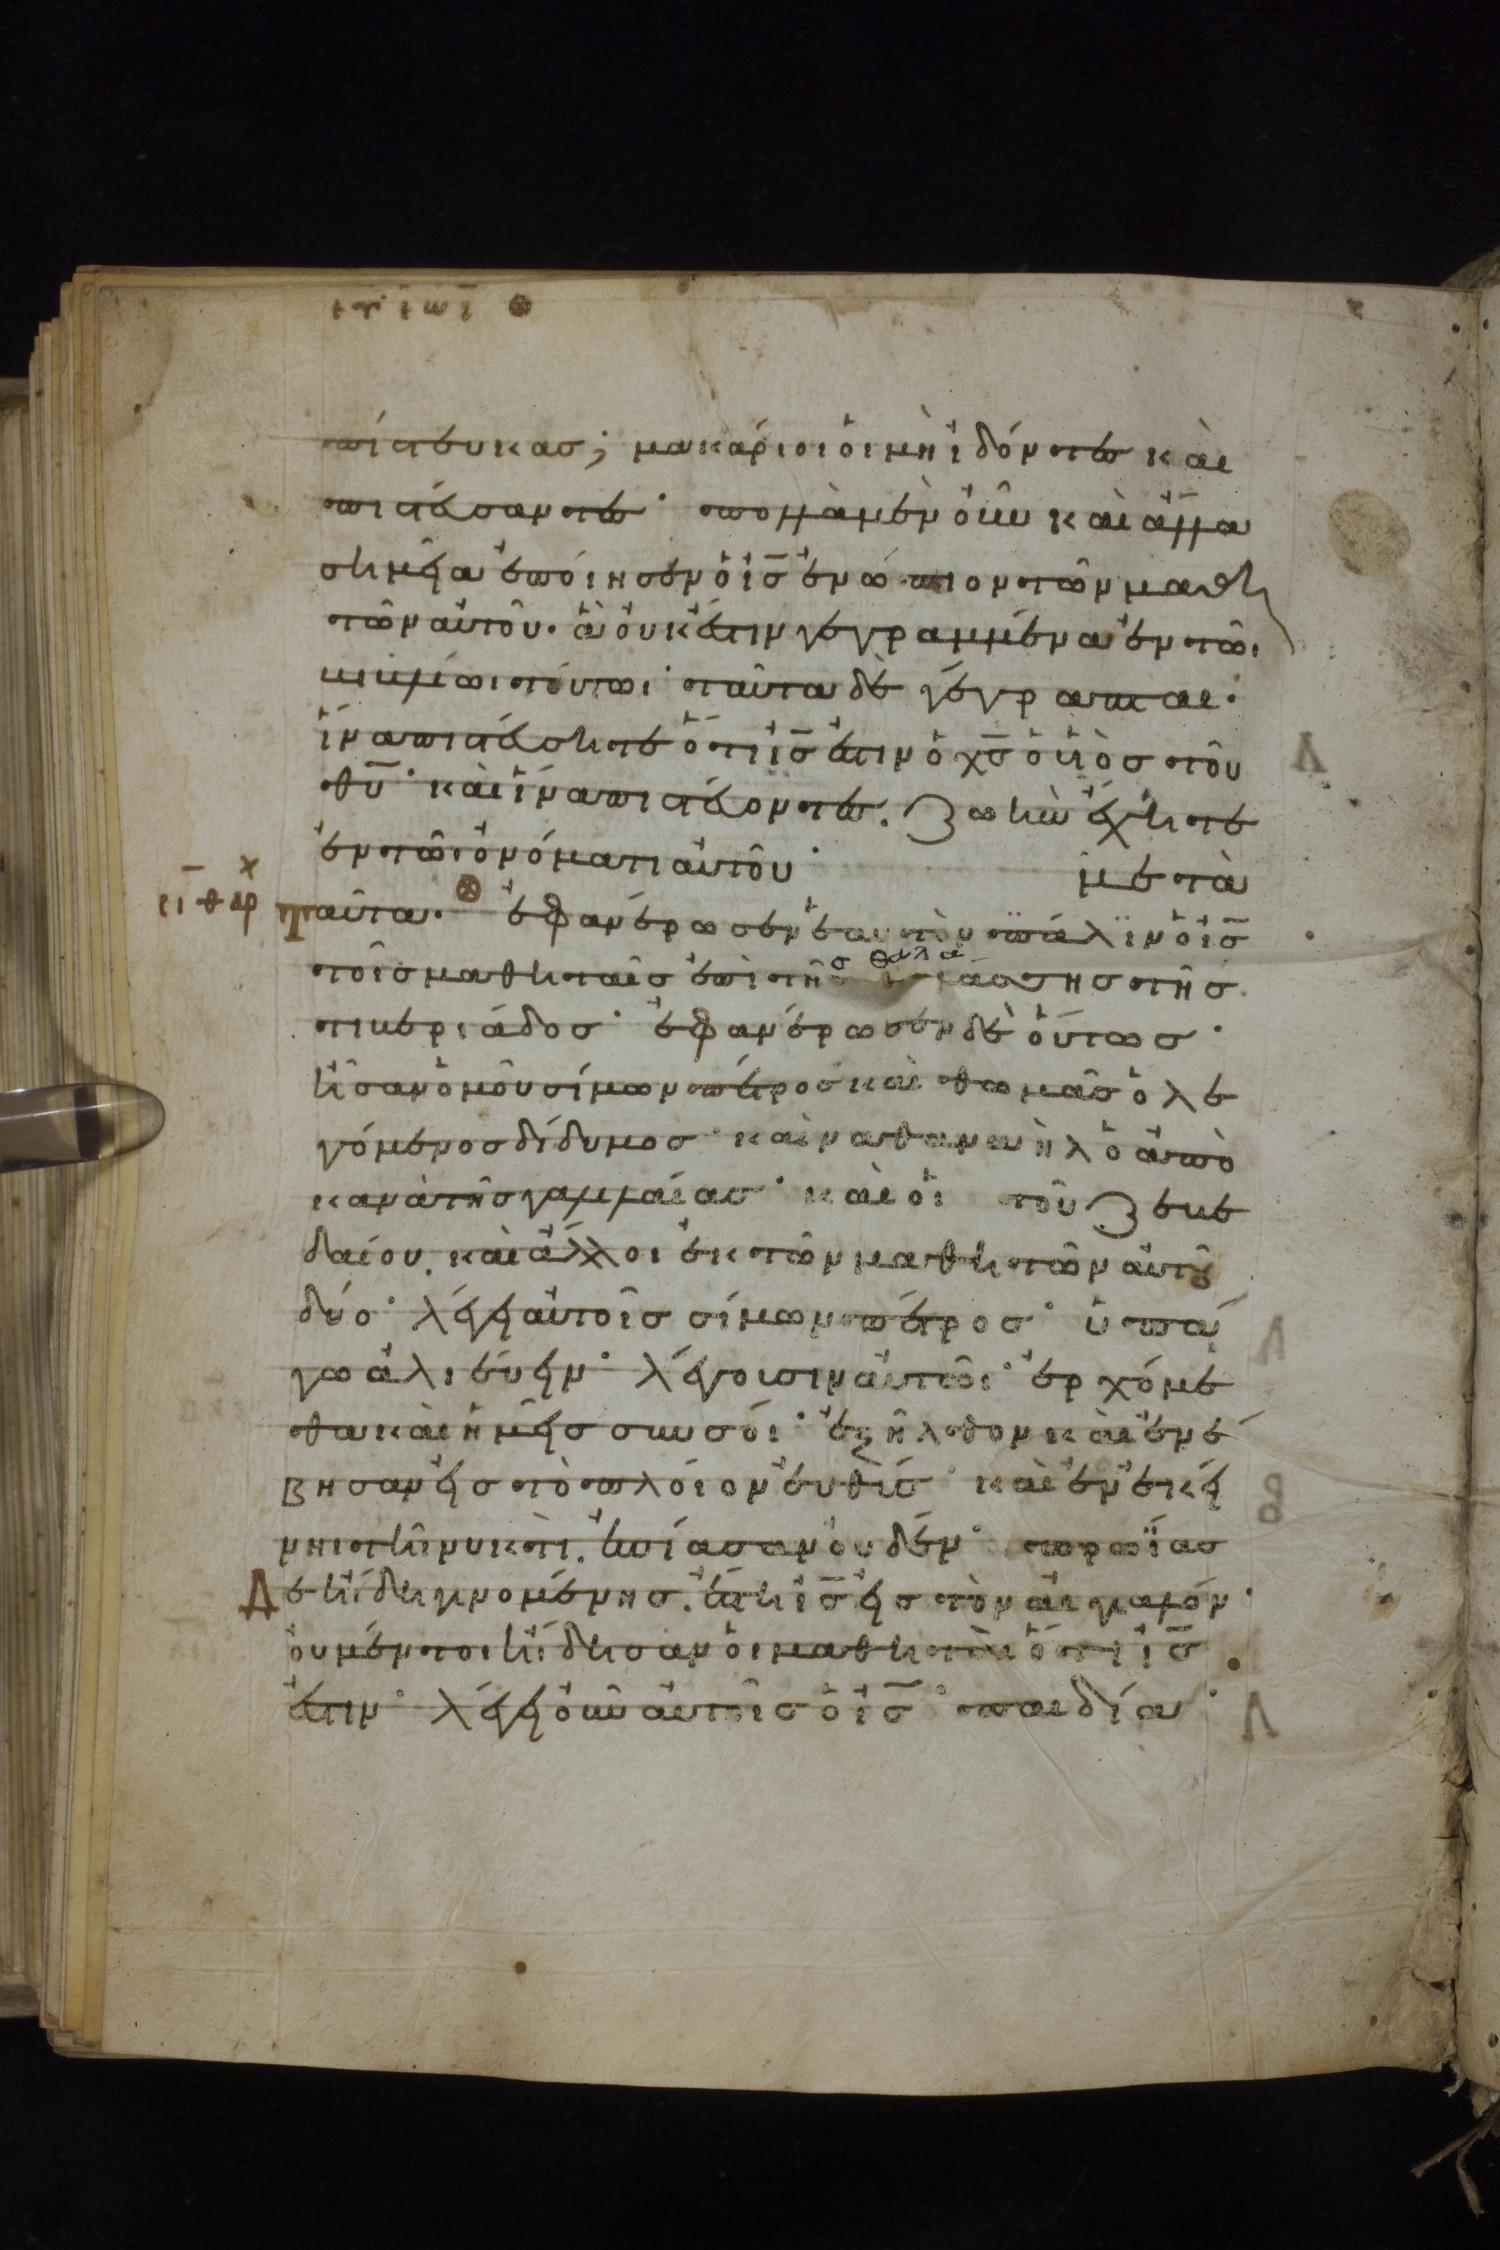 πίστευκας; μακάριοι ὁι μὴ ἰδόντες καὶ
πιστεύσαντες· πολλὰ μὲν οὖν καὶ ἄλλα
σημεῖα ἐποίησεν ὁ ι̅ς̅ ἐνώπιον τῶν μαθη
τῶν αὐτοῦ· ἃ οὐκ ἔστιν γεγραμμένα ἐν τῶι
βιβλίωι τούτωι· ταῦτα δὲ γέγραπται·
ἵνα πιστεύσητε ὅτι ι̅ς̅ ἐστιν ὁ χ̅ς̅ ὁ υἱὸς τοῦ
θ̅υ̅· καὶ ἵνα πιστεύοντες. ζωὴν ἔχητε
ἐν τῶι ὀνόματι αὐτοῦ· μετὰ
ταῦτα· ἐφανέρωσεν ἑαυτὸν πάλϊν ὁ ι̅ς̅
τοῖς μαθηταῖς ἐπὶ τῆς θαλάσσης τῆς
τιβεριάδος· ἐφανέρωσεν δὲ οὕτως·
ἦσαν ὁμοῦ σίμων πέτρος καὶ θωμᾶς ὁ λε
γόμενος δίδυμος· καὶ ναθαναὴλ ὁ ἀπὸ
κανὰ τῆς γαλλιλαίας· καὶ οἱ τοῦ ζεβε
δαίου. καὶ ἄλλοι ἐκ τῶν μαθητῶν αὐτοῦ
δύο· λέγει αὐτοῖς σίμων πέτρος· ὑπά
γω ἁλιεύειν· λέγουσιν αὐτῶι· ἐρχόμε
θα καὶ ἡμεῖς σὺν σόι· ἐξῆλθον καὶ ἐνέ
βησαν εἰς τὸ πλόιον ἐυθὺς· καὶ ἐν ἐκεί
νηι τῆι νυκτὶ. ἐπίασαν οὐδέν· πρωΐας
Δ ε ἤδη γενομένης. ἔστη ι̅ς̅ εἰς τὸν αἰγιαλόν·
οὐ μέντοι ἤδησαν ὁι μαθηταὶ ὅτι ι̅ς̅
ἐστιν· λέγει οὖν αὐτοῖς ὁ ι̅ς̅· παιδία·